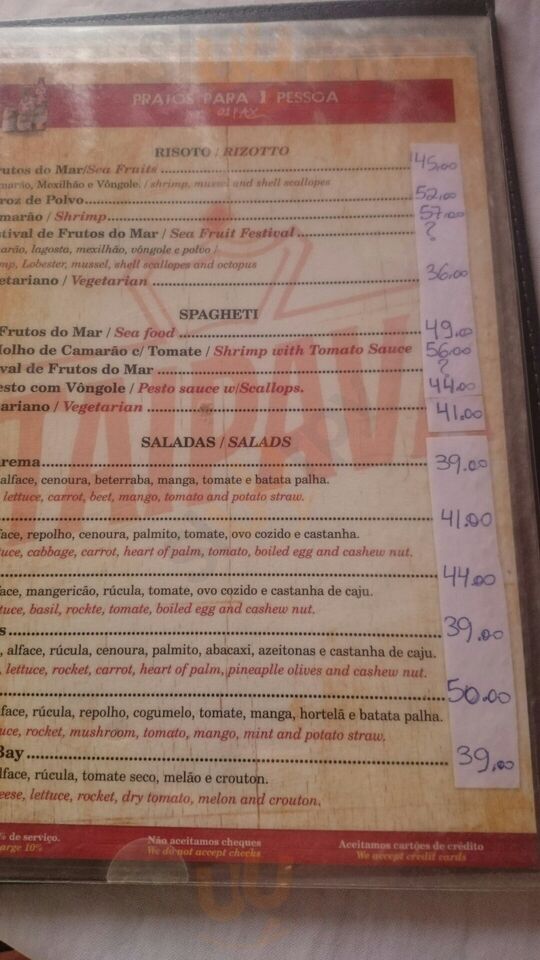 PRATOS PARA 1 PESSOA
RISOTO / RIZOTTO
rutos do Mar/Sea Fruits 45,00
marão, Mexilhão e Vôngole. / shrimp, mussel and shell scallopes
roz de Polvo 52,00
marão / Shrimp 57,00
stival de Frutos do Mar / Sea Fruit Festival ?
arão, lagosta, mexilhão, vôngole e polvo /
mp, Lobester, mussel, shell scallopes and octopus
etariano / Vegetarian 36,00
SPAGHETI
Frutos do Mar / Sea food 49,00
Molho de Camarão c/ Tomate / Shrimp with Tomato Sauce 56,00
val de Frutos do Mar ?
esto com Vôngole / Pesto sauce w/Scallops. 44,00
ariano / Vegetarian 41,00
TAIPAVA
SALADAS / SALADS
arema 39,00
alface, cenoura, beterraba, manga, tomate e batata palha.
lettuce, carrot, beet, mango, tomato and potato straw.
41,00
face, repolho, cenoura, palmito, tomate, ovo cozido e castanha.
tuce, cabbage, carrot, heart of palm, tomato, boiled egg and cashew nut.
44,00
face, mangericão, rúcula, tomate, ovo cozido e castanha de caju.
tuce, basil, rockte, tomate, boiled egg and cashew nut.
s 39,00
, alface, rúcula, cenoura, palmito, abacaxi, azeitonas e castanha de caju.
, lettuce, rocket, carrot, heart of palm, pineaplle olives and cashew nut.
50,00
face, rúcula, repolho, cogumelo, tomate, manga, hortelã e batata palha.
uce, rocket, mushroom, tomato, mango, mint and potato straw.
Bay 39,00
alface, rúcula, tomate seco, melão e crouton.
eese, lettuce, rocket, dry tomato, melon and crouton.
% de serviço. Não aceitamos cheques Aceitamos cartões de crédito
arge 10% We do not accept checks We accept credit cards